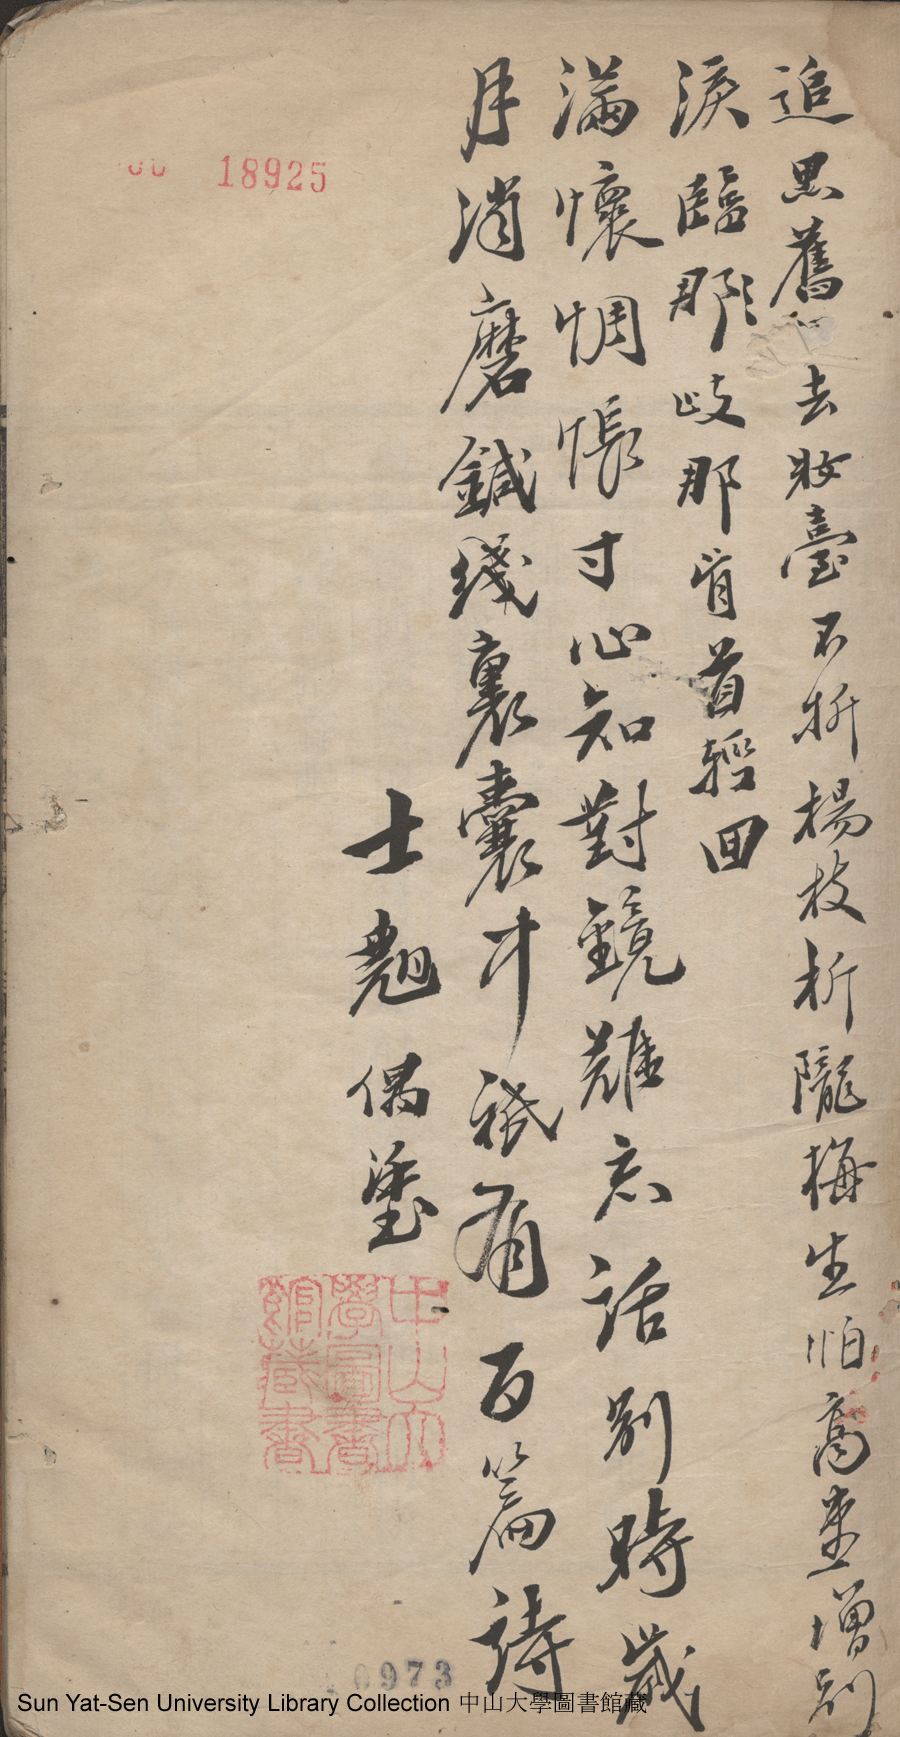 追思舊 去妝臺不折楊枝折隴梅生怕高臺增別
淚臨 歧那肯首輕回
滿懷惆悵寸心知對鏡難忘話別時歲
月消磨鍼綫裏囊中祇有百篇詩
士 偶塗
中山大
學圖書
館藏書
18925
0973
Sun Yat-Sen University Library Collection 中山大學圖書館藏